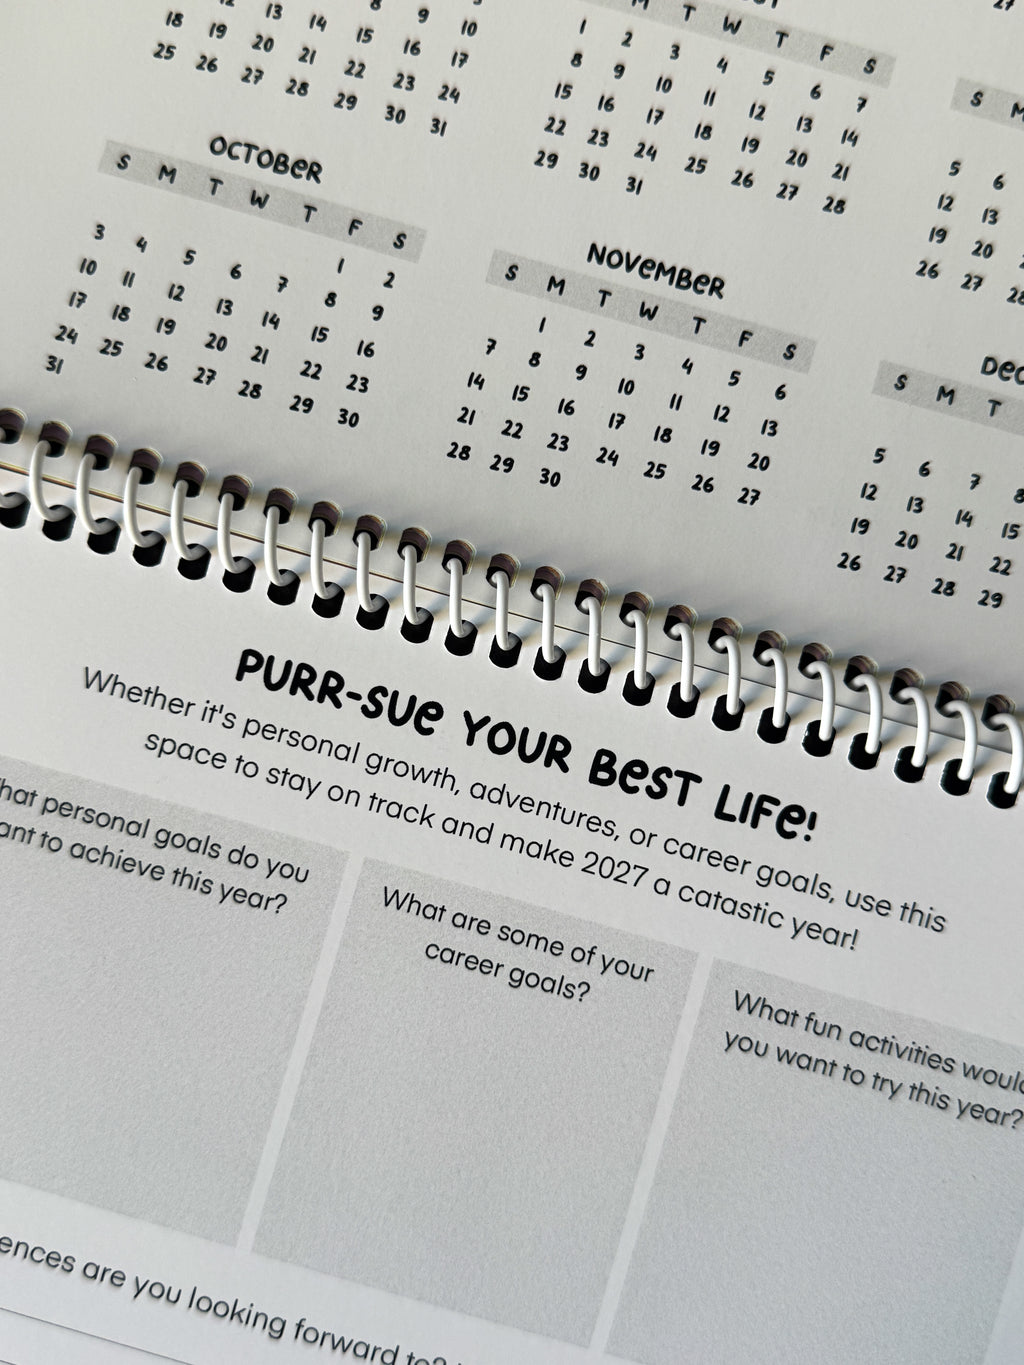 13 14 8 9
18 19 20 21 15 16 10
25 26 27 28 22 23 17
29 30 24
31
M T W T F S
1 2 3 4 5 6 7
8 9 10 11 12 13 14
15 16 17 18 19 20 21
22 23 24 25 26 27 28
29 30 31
S
5 6
12 13
19 20
26 27 28
OCTOBER
S M T W T F S
1 2
3 4 5 6 7 8 9
10 11 12 13 14 15 16
17 18 19 20 21 22 23
24 25 26 27 28 29 30
31
NOVEMBER
S M T W T F S
1 2 3 4 5 6
7 8 9 10 11 12 13
14 15 16 17 18 19 20
21 22 23 24 25 26 27
28 29 30
DEC
S M T
5 6 7 8
12 13 14 15
19 20 21 22
26 27 28 29
PURR-SUE YOUR BEST LIFE!
Whether it's personal growth, adventures, or career goals, use this
space to stay on track and make 2027 a catastic year!
hat personal goals do you
ant to achieve this year?
What are some of your
career goals?
What fun activities would
you want to try this year?
ences are you looking forward to?